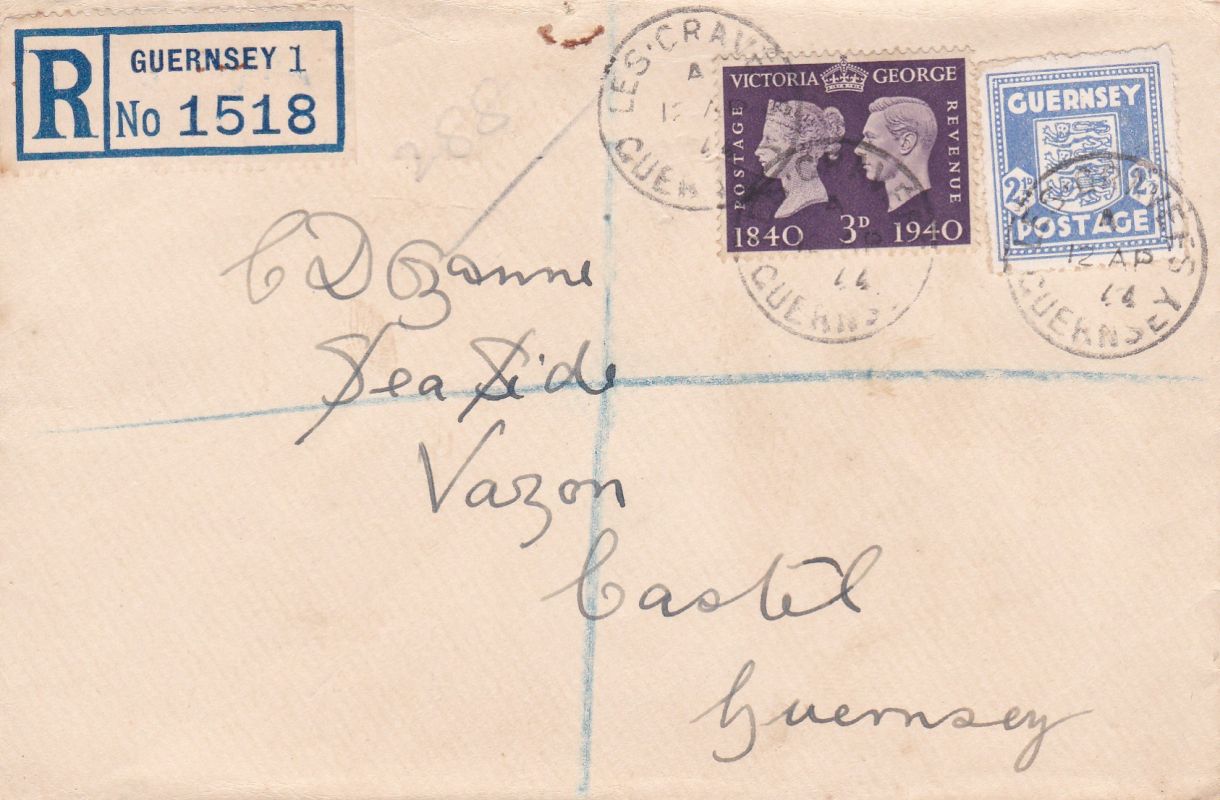 R GUERNSEY 1
No 1518
288
LES·CRAV
A
12
GUER
VICTORIA GEORGE
POSTAGE
REVENUE
1840 3D 1940
44
GUERNS
GUERNSEY
2½D
POSTAGE
A
12 AP
44
GUERNSEY
C D Ozanne
Sea Side
Vazon
Castel
Guernsey